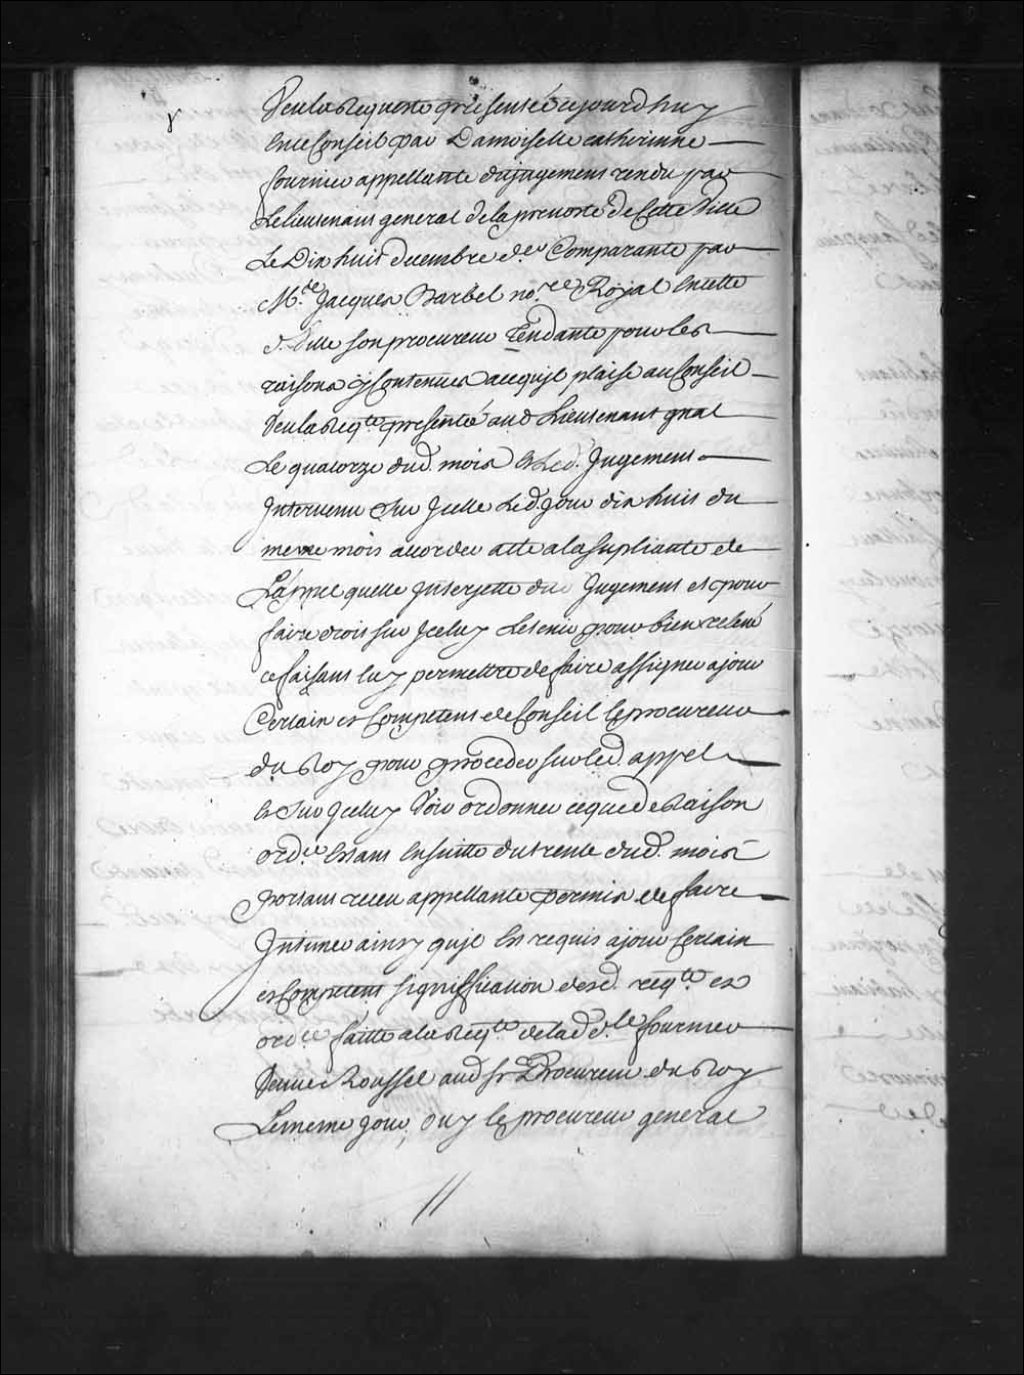 Veu la Requeste presentée ce jourd huy
en ce Conseil par Damoiselle catherinne
fournier appellante du jugement rendu par
Le lieutenant general de la prevosté de Cette Ville
Le Dix huit decembre d.er Comparante par
M.re Jacques Barbel no.re Royal en cette
d. Ville son procureur Tendante pour les
raisons y Contenues a ce qu'jl plaise au Conseil
Veu la Req.te presentée aud Lieutenant gnal
Le quatorze dud. mois et Led. Jugement
Intervenu Sur Jcelle Led. jour dix huit du
meme mois accorder acte a la supliante de
L'appel quelle Interjette du Jugement et pour
faire droit sur Jceluy La tenir pour bien relevé
ce faisant luy permettre de faire assigner a jour
Certain et Competent de Conseil le procureur
du Roy pour proceder sur led. appel
et Sur Jceluy Voir ordonner ce que de Raison
ord.ce Estant ensuitte du trente dud. mois
portant receu appellante permis de faire
Intimer ainsy qu'jl est requis a jour Certain
et Competent signiffication desd. req.te et
ord.ce faitte a la Req.te de lad. d.lle fournier
Veuve Roussel aud Sr Procureur du Roy
Le meme jour, ouy le procureur general